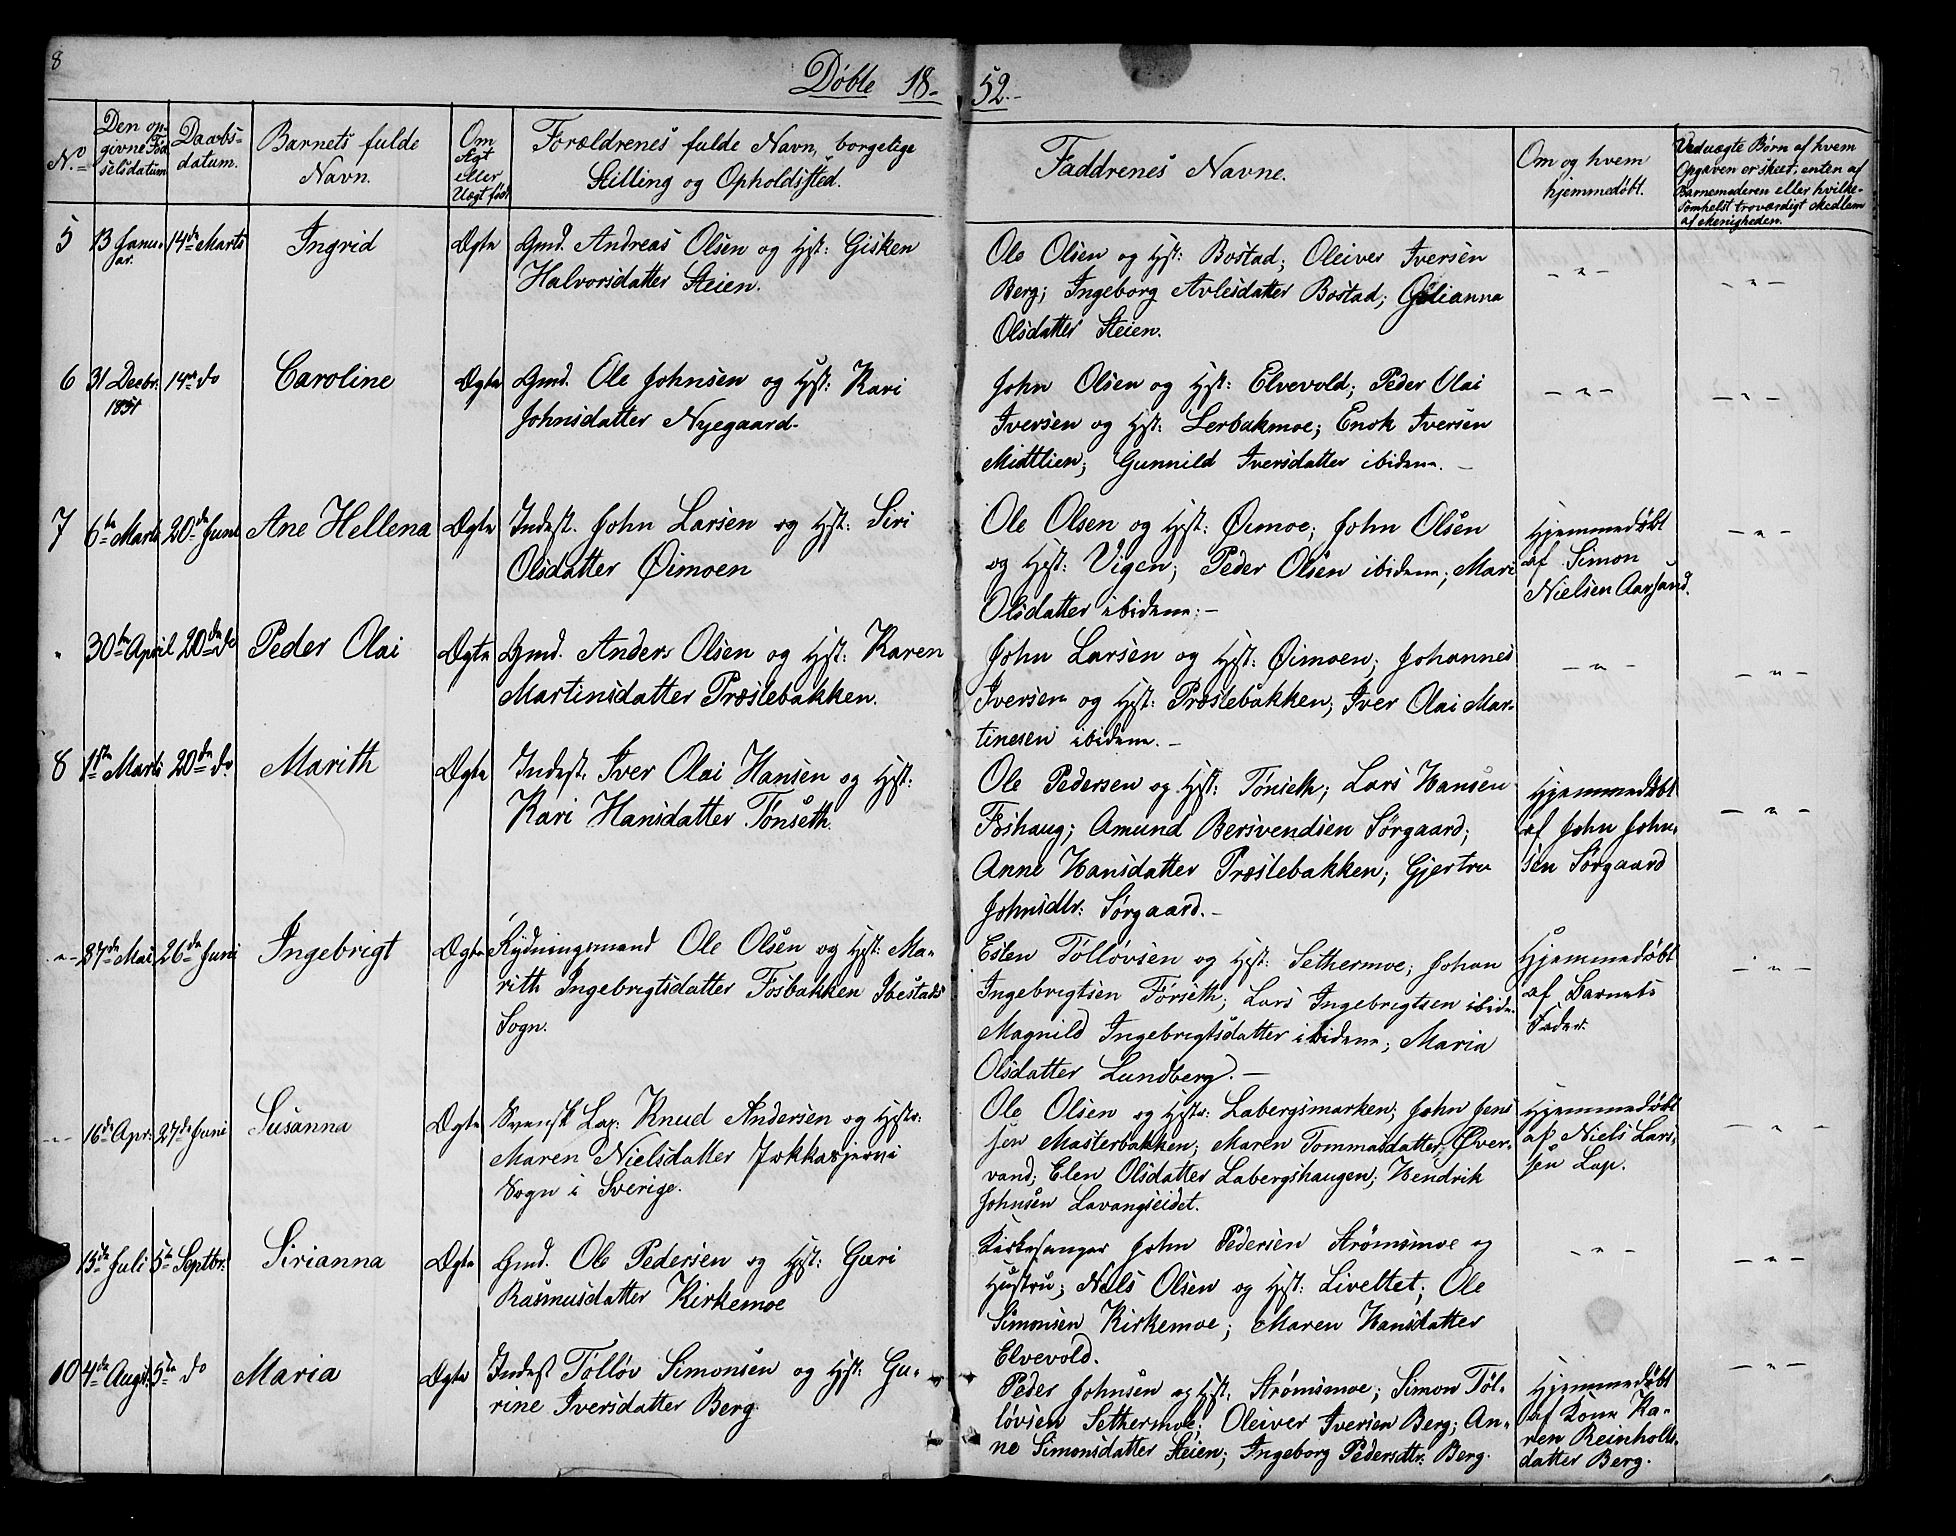 8
Døbte 18-52.-
No
Den op-
givne Fød
selsdatum
Daabs-
datum.
Barnets fulde
Navn.
Om
Ægt
eller
Uægt født
Forældrenes fulde Navn, borgelige
Stilling og Opholdssted.
Faddrenes Navne.
Om og hvem
hjemmedøbt.
Ved uægte Børn af hvem
Opgaven er skeet, enten af
Barnemoderen eller hvilke-
somhelst troværdigt Medlem
af Menigheden.
5 13 Janu- 14de Marts Ingrid Ægte Gmd. Andreas Olsen og Hst: Gisken
ar.
Halvorsdatter Steien.
Ole Olsen og Hst: Bostad; Oleiver Iversen
Berg; Ingeborg Avlesdatter Bostad; Gjelianna
Olsdatter Steien.
— " — — " —
6 31 Decbr. 14de do Caroline Ægte Gmd. Ole Johnsen og Hst: Kari
1851
Johnsdatter Nyegaard.
John Olsen og Hst: Elvevold; Peder Olai
Iversen og Hst: Lerbakmoe; Enok Iversen
Midtlien; Gunnild Iversdatter ibidem. —
— " — — " —
7 6te Marts 20de Juni Ane Hellena Ægte Indest. John Larsen og Hst: Siri
Olsdatter Øimoen
Ole Olsen og Hst: Øimoe; John Olsen
og Hst: Vigen; Peder Olsen ibidem; Mari
Olsdatter ibidem; —
Hjemmedøbt
af Simon
Nielsen Aarsand.
— " —
" 30te April 20de do Peder Olai Ægte Gmd. Anders Olsen og Hst: Karen
Martinsdatter Præstebakken.
John Larsen og Hst: Øimoen; Johannes
Iversen og Hst: Præstebakken; Iver Olai Mar-
tinesen ibidem. —
— " — — " —
8 1ste Marts 20de do Marith Ægte Indest. Iver Olai Hansen og Hst:
Kari Hansdatter Tønseth.
Ole Pedersen og Hst: Tønseth; Lars Hansen
Foshaug; Amund Bersvendsen Sørgaard;
Anne Hansdatter Præstebakken; Gjertru
Johnsdtr: Sørgaard. -
Hjemmedøbt
af John John-
sen Sørgaard
— " —
-"- 27de Mai 26de Juni Ingebrigt Ægte Rydningsmand Ole Olsen og Hst: Ma-
rith Ingebrigtsdatter Fosbakken Ibestads
Sogn.
Esten Tølløvsen og Hst: Sethermoe; Johan
Ingebrigtsen Førseth; Lars Ingebrigtsen ibide.
Magnild Ingebrigtsdatter ibidem; Maria
Olsdatter Lundberg. —
Hjemmedøbt
af Barnets
Fader.
— " —
-"- 16de Apr: 27de Juni Susanna Ægte Svensk Lap. Knud Andersen og Hstr:
Maren Nielsdatter Jokkasjervi
Sogn i Sverige.
Ole Olsen og Hstr: Labergsmarken; John Jens
sen Masterbakken; Maren Tommasdatter Øver-
vand; Elen Olsdatter Labergshaugen; Hendrik
Johnsen Lavangseidet.
Hjemmedøbt
af Niels Lars,
sen Lap.
— " —
15de Juli 5te Septbr: Sirianna Ægte Gmd. Ole Pedersen og Hst: Guri
Rasmusdatter Kirkemoe
Kirkesanger John Pedersen Strømsmoe og
Hustru; Nels Olsen og Hst: Liveltet; Ole
Simonsen Kirkemoe; Maren Hansdatter
Elvevold.
— " — — " —
10 4de Augst: 5te do Maria Ægte Indest Tølløv Simonsen og Hst: Gu-
rine Iversdatter Berg.
Peder Johnsen og Hst: Strømsmoe; Simon Tøl-
løvsen Sethermoe; Oleiver Iversen Berg; An-
ne Simonsdatter Steien; Ingeborg Pedersdtr. Berg.
Hjemmedøbt
af Kone Ka-
ren Reinholts-
datter Berg.
— " —